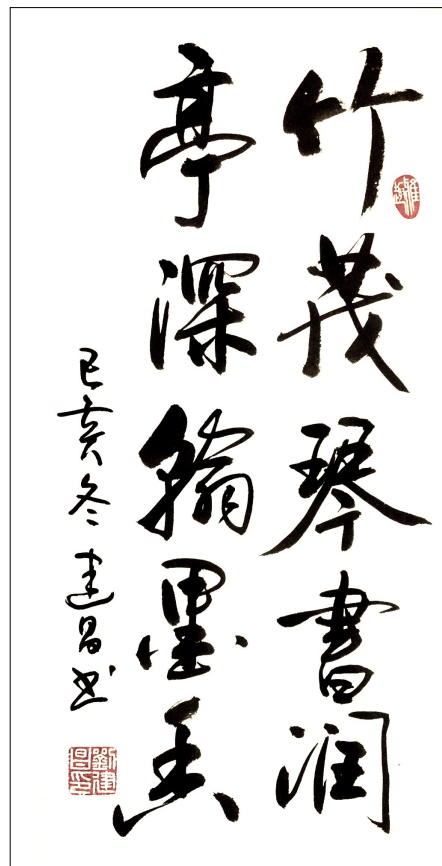 竹茂琴書润
亭深翰墨香
己亥冬 建昌书
雅趣
劉建昌印